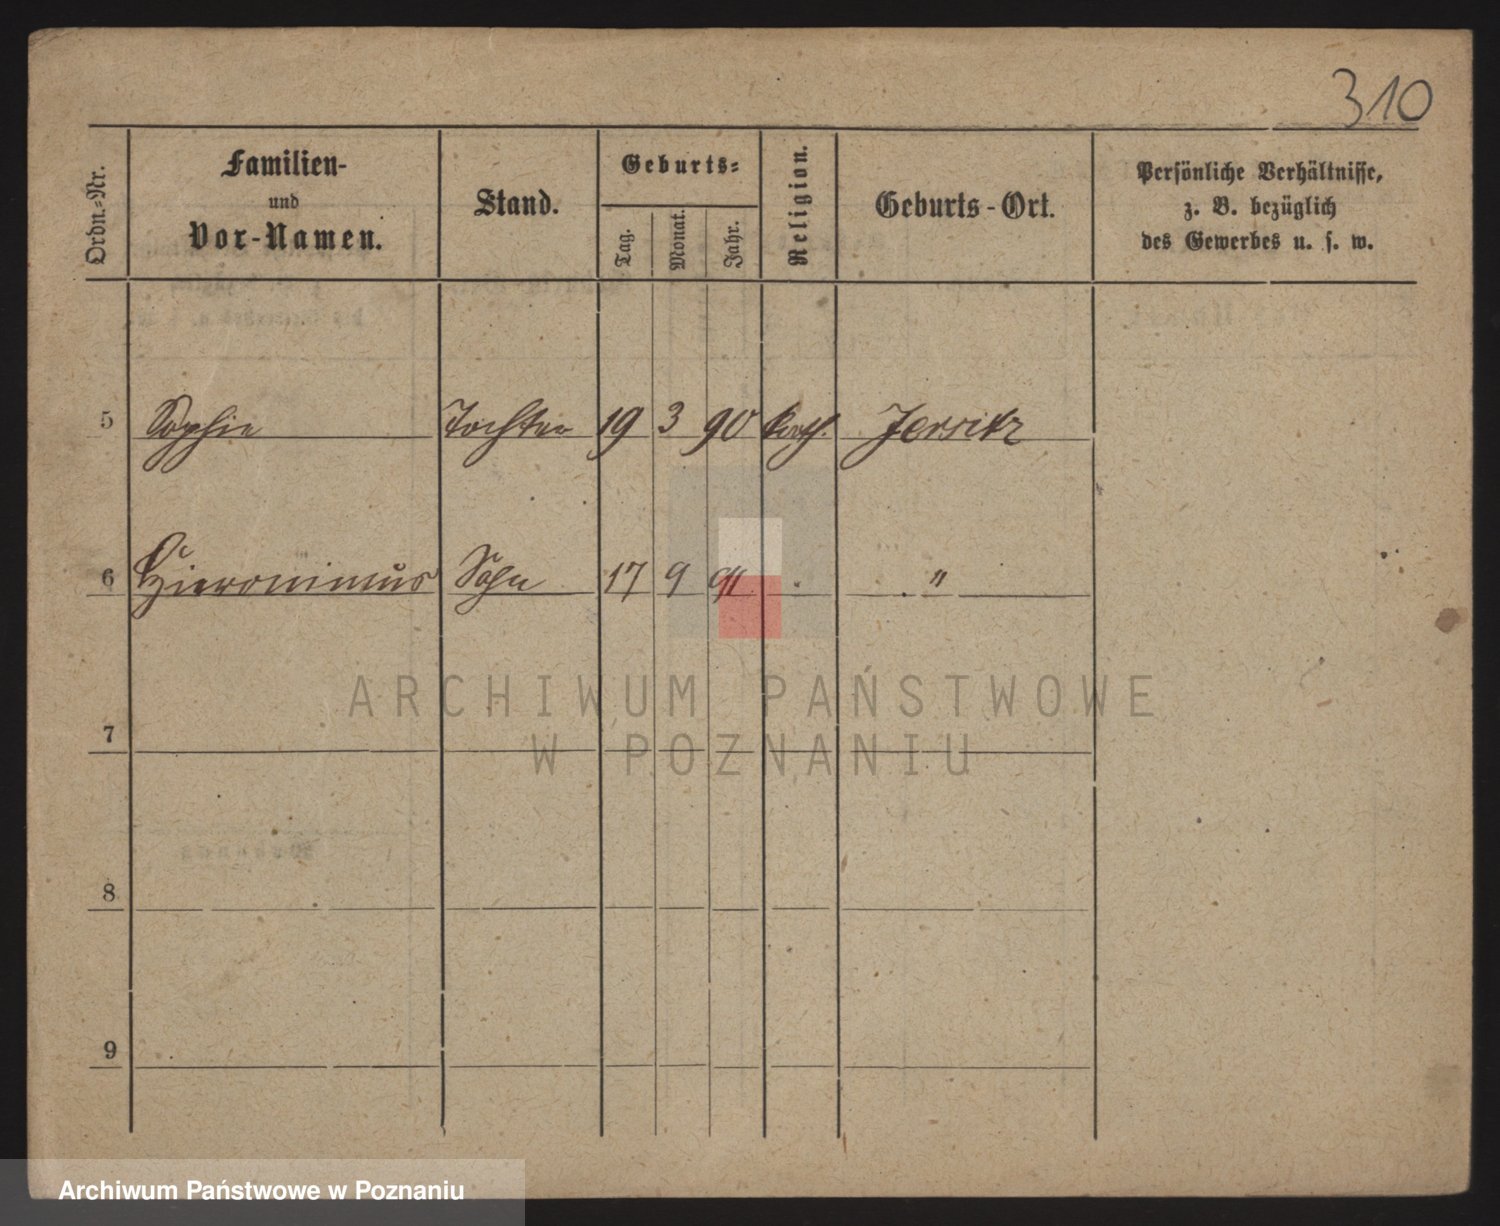 310
Ordn.-Nr.
Familien-
und
Vor-Namen.
Stand.
Geburts-
Tag.
Monat.
Jahr.
Religion.
Geburts-Ort.
Persönliche Verhältnisse,
z. B. bezüglich
des Gewerbes u. s. w.
5 Sophie Tochter 19 3 90 kath. Jersitz
6 Hieronimus Sohn 17 9 91 "
7
8
9
ARCHIWUM PAŃSTWOWE
W POZNANIU
Archiwum Państwowe w Poznaniu